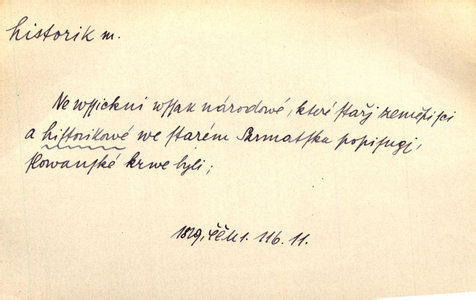 historik m.
Ne wssickni wssak národowé, které stařj zeměpisci
a historikowé we starém Sarmatsku popisugj,
slowanské krwe byli;
1829, ČČM 1. 116. 11.